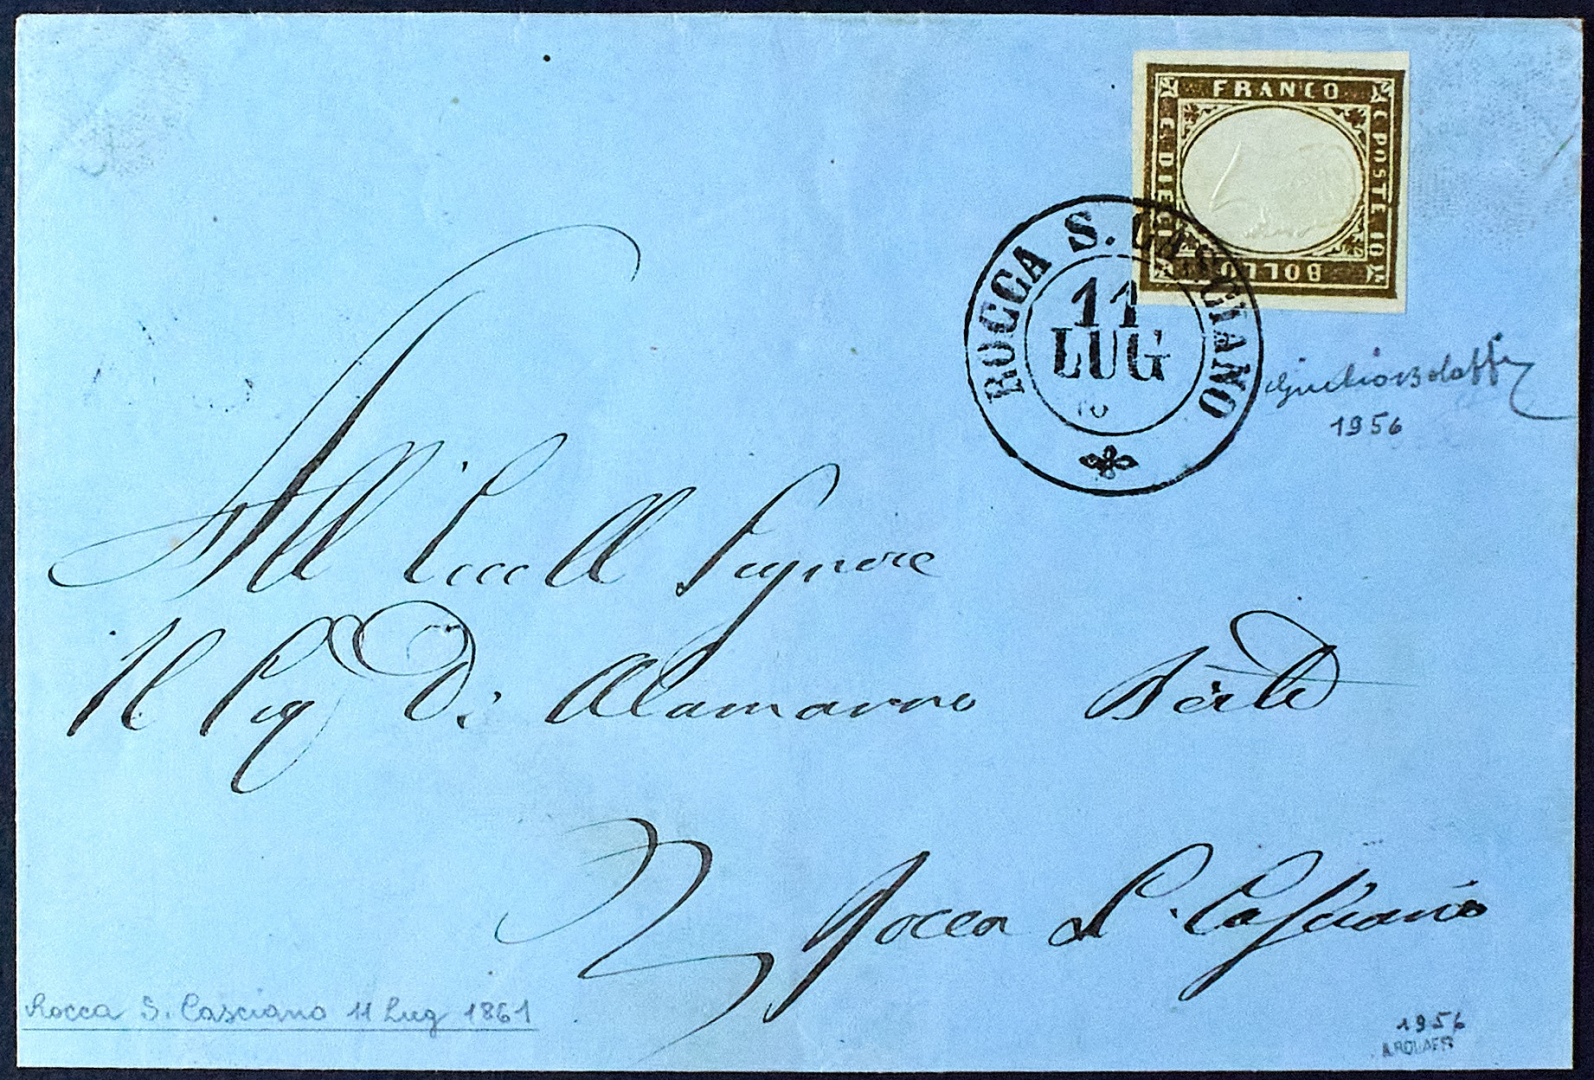 FRANCO
C. DIECI
C. POSTE 10
BOLLO
ROCCA S. CASCIANO
11
LUG
Giulio Bolaffi
1956
All' Eccell Signore
Il Sig Di Alamanno
Rocca S. Casciano
Rocca S. Casciano 11 Lug 1861
1956
A. BOLAFFI